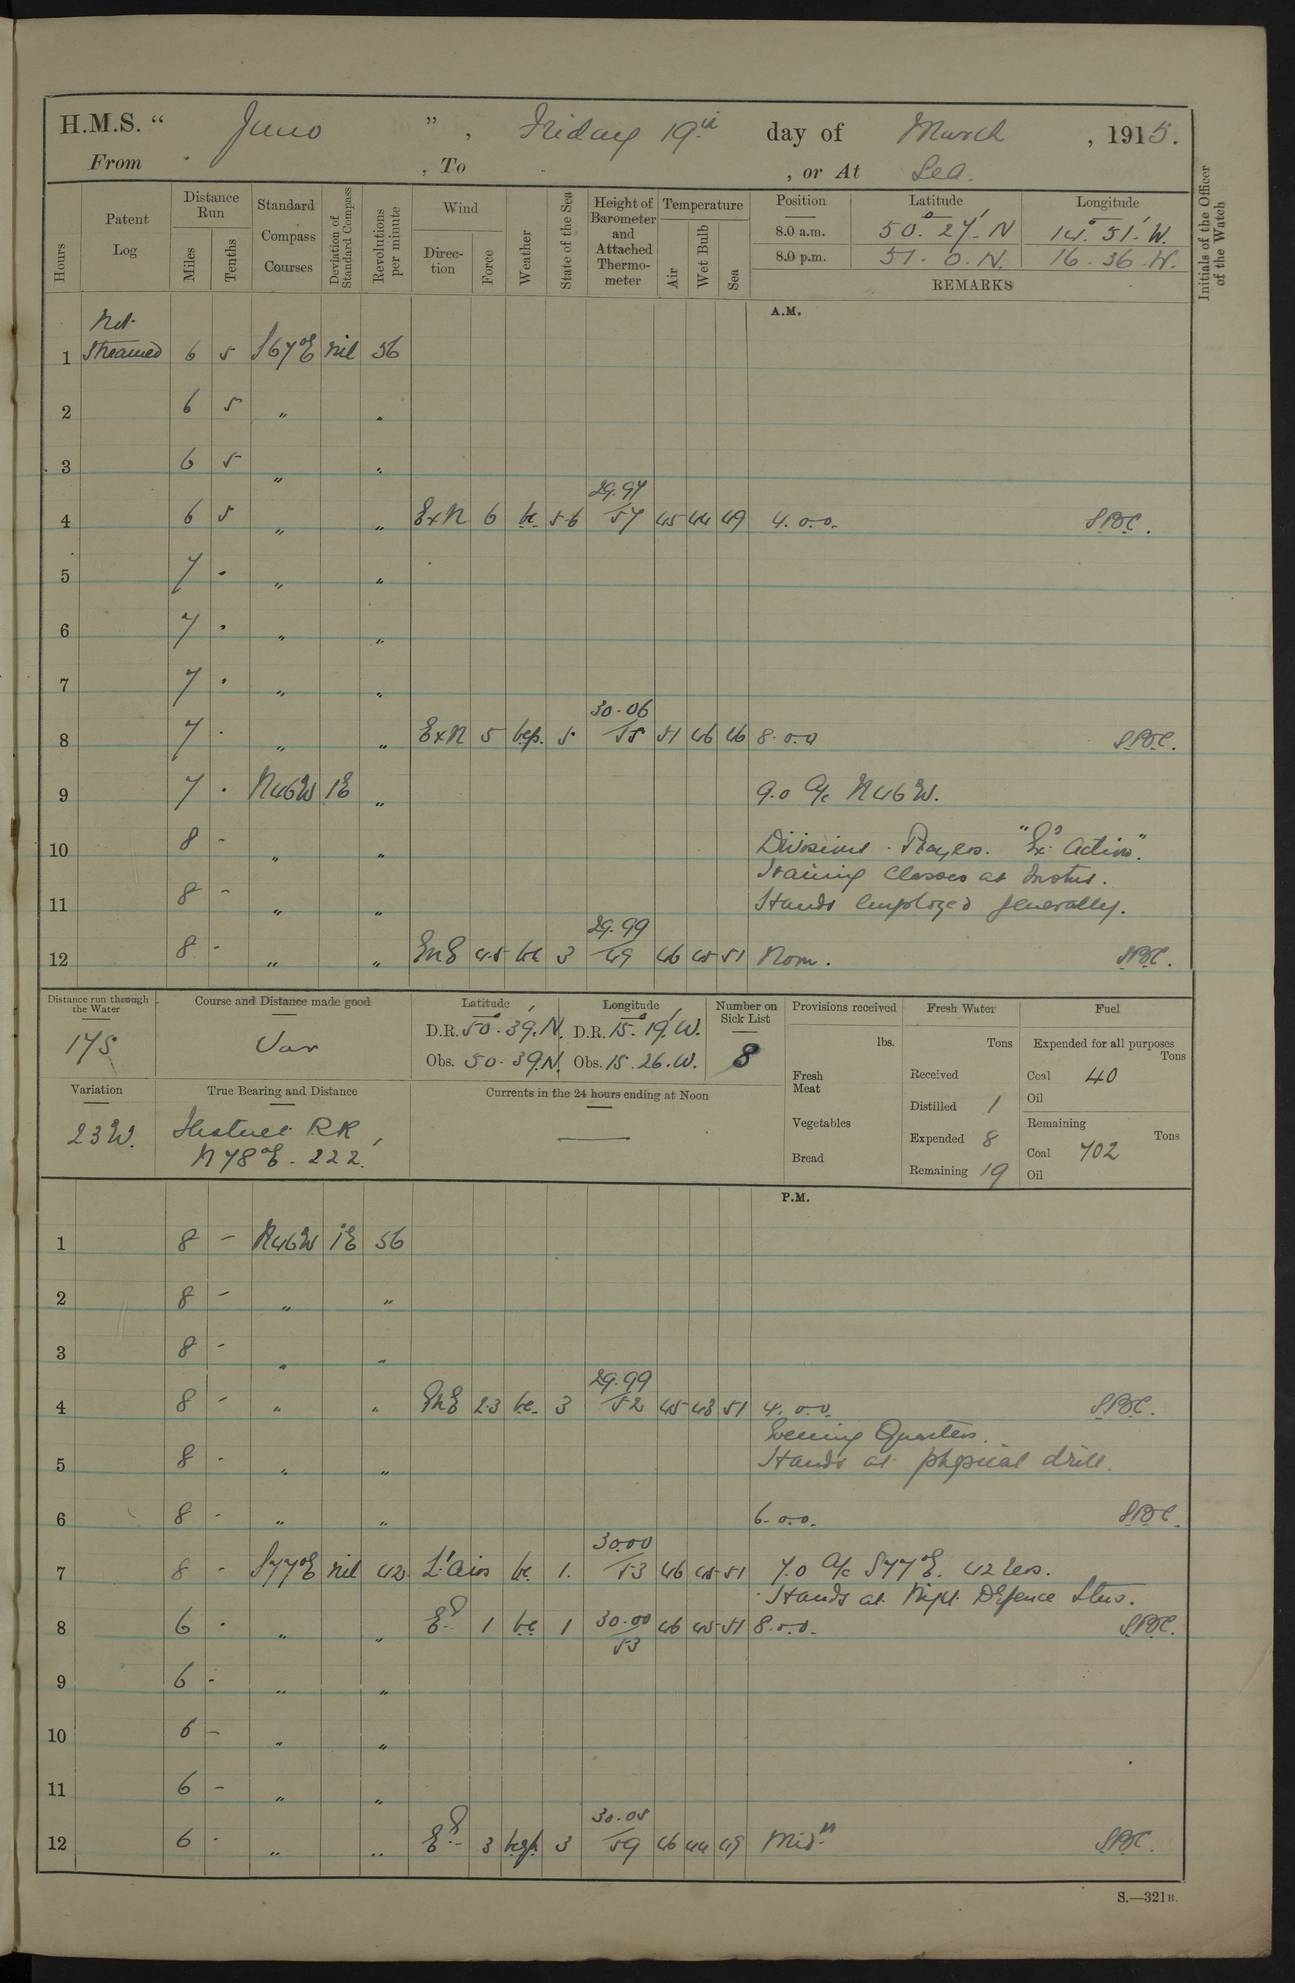 H.M.S. “ Juno ” , Friday 19th day of March , 1915.
From , To , or At Sea.
Hours
Patent Log
Distance Run
Miles
Tenths
Standard Compass Courses
Deviation of Standard Compass
Revolutions per minute
Wind
Direction
Force
Weather
State of the Sea
Height of Barometer and Attached Thermometer
Temperature
Air
Wet Bulb
Sea
Position Latitude Longitude
8.0 a.m. 50° 27' N 14° 51' W.
8.0 p.m. 51. 0. N. 16. 36. W.
REMARKS
Initials of the Officer of the Watch
A.M.
Not
1 Streamed 6 5 S67°E nil 56
2 6 5 " "
3 6 5 " "
29.97
4 6 5 " " ExN 6 bc. 5-6 57 45 44 49 4. 0.0.
5 7 . " "
6 7 . " "
7 7 . " "
30.06
8 7 . " " ExN 5 bcp. 5 55 51 46 46 8.0.0
9 7 . N46W 1E " 9.0 A/c N46W.
10 8 - " " Divisions. Prayers. "Ex. Action".
Training Classes at Instns.
11 8 - " " Hands employed generally.
29.99
12 8 - " " EnE 4.5 bc 3 49 46 45 51 Noon.
Distance run through the Water
175
Course and Distance made good
Var
Latitude
D.R. 50° 39' N.
Obs. 50. 39 N.
Longitude
D.R. 15° 19' W.
Obs. 15. 26. W.
Number on Sick List
8
Provisions received
lbs.
Fresh Meat
Vegetables
Bread
Fresh Water
Tons
Received
Distilled 1
Expended 8
Remaining 19
Fuel
Expended for all purposes
Tons
Coal 40
Oil
Remaining
Tons
Coal 702
Oil
Variation
23 W.
True Bearing and Distance
N 78°E. 222'.
Currents in the 24 hours ending at Noon
P.M.
1 8 - N46W 1E 56
2 8 - " "
3 8 - " "
29.99
4 8 - " " EnE 2.3 bc. 3 52 45 43 51 4. 0.0.
Evening Quarters.
5 8 - " " Hands at physical drill.
6 8 - " " 6. 0.0.
30.00
7 8 - S77°E nil 42 Lt airs bc 1. 53 46 45 51 7.0 A/c S77°E. 42 revs.
Hands at Night Defence Stns.
8 6 . " " Ely 1 bc 1 30.00 46 45 51 8.0.0.
53
9 6 - " "
10 6 - " "
11 6 - " "
30.05
12 6 . " " Ely 3 3 59 46 44 49 Midn
S.—321B.